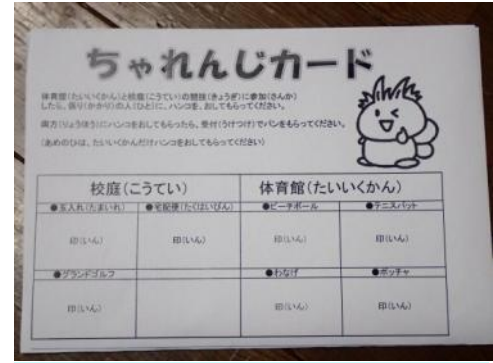 ちゃれんじカード
体育館(たいいくかん)と校庭(こうてい)の競技(きょうぎ)に参加(さんか)
したら、係り(かかり)の人(ひと)に、ハンコを、おしてもらってください。
両方(りょうほう)にハンコをおしてもらったら、受付(うけつけ)でパンをもらってください。
(あめのひは、たいいくかんだけハンコをおしてもらってください)
校庭(こうてい) 体育館(たいいくかん)
●玉入れ(たまいれ) ●宅配便(たくはいびん) ●ビーチボール ●テニスバット
印(いん) 印(いん) 印(いん) 印(いん)
●グランドゴルフ ●わなげ ●ボッチャ
印(いん) 印(いん) 印(いん)